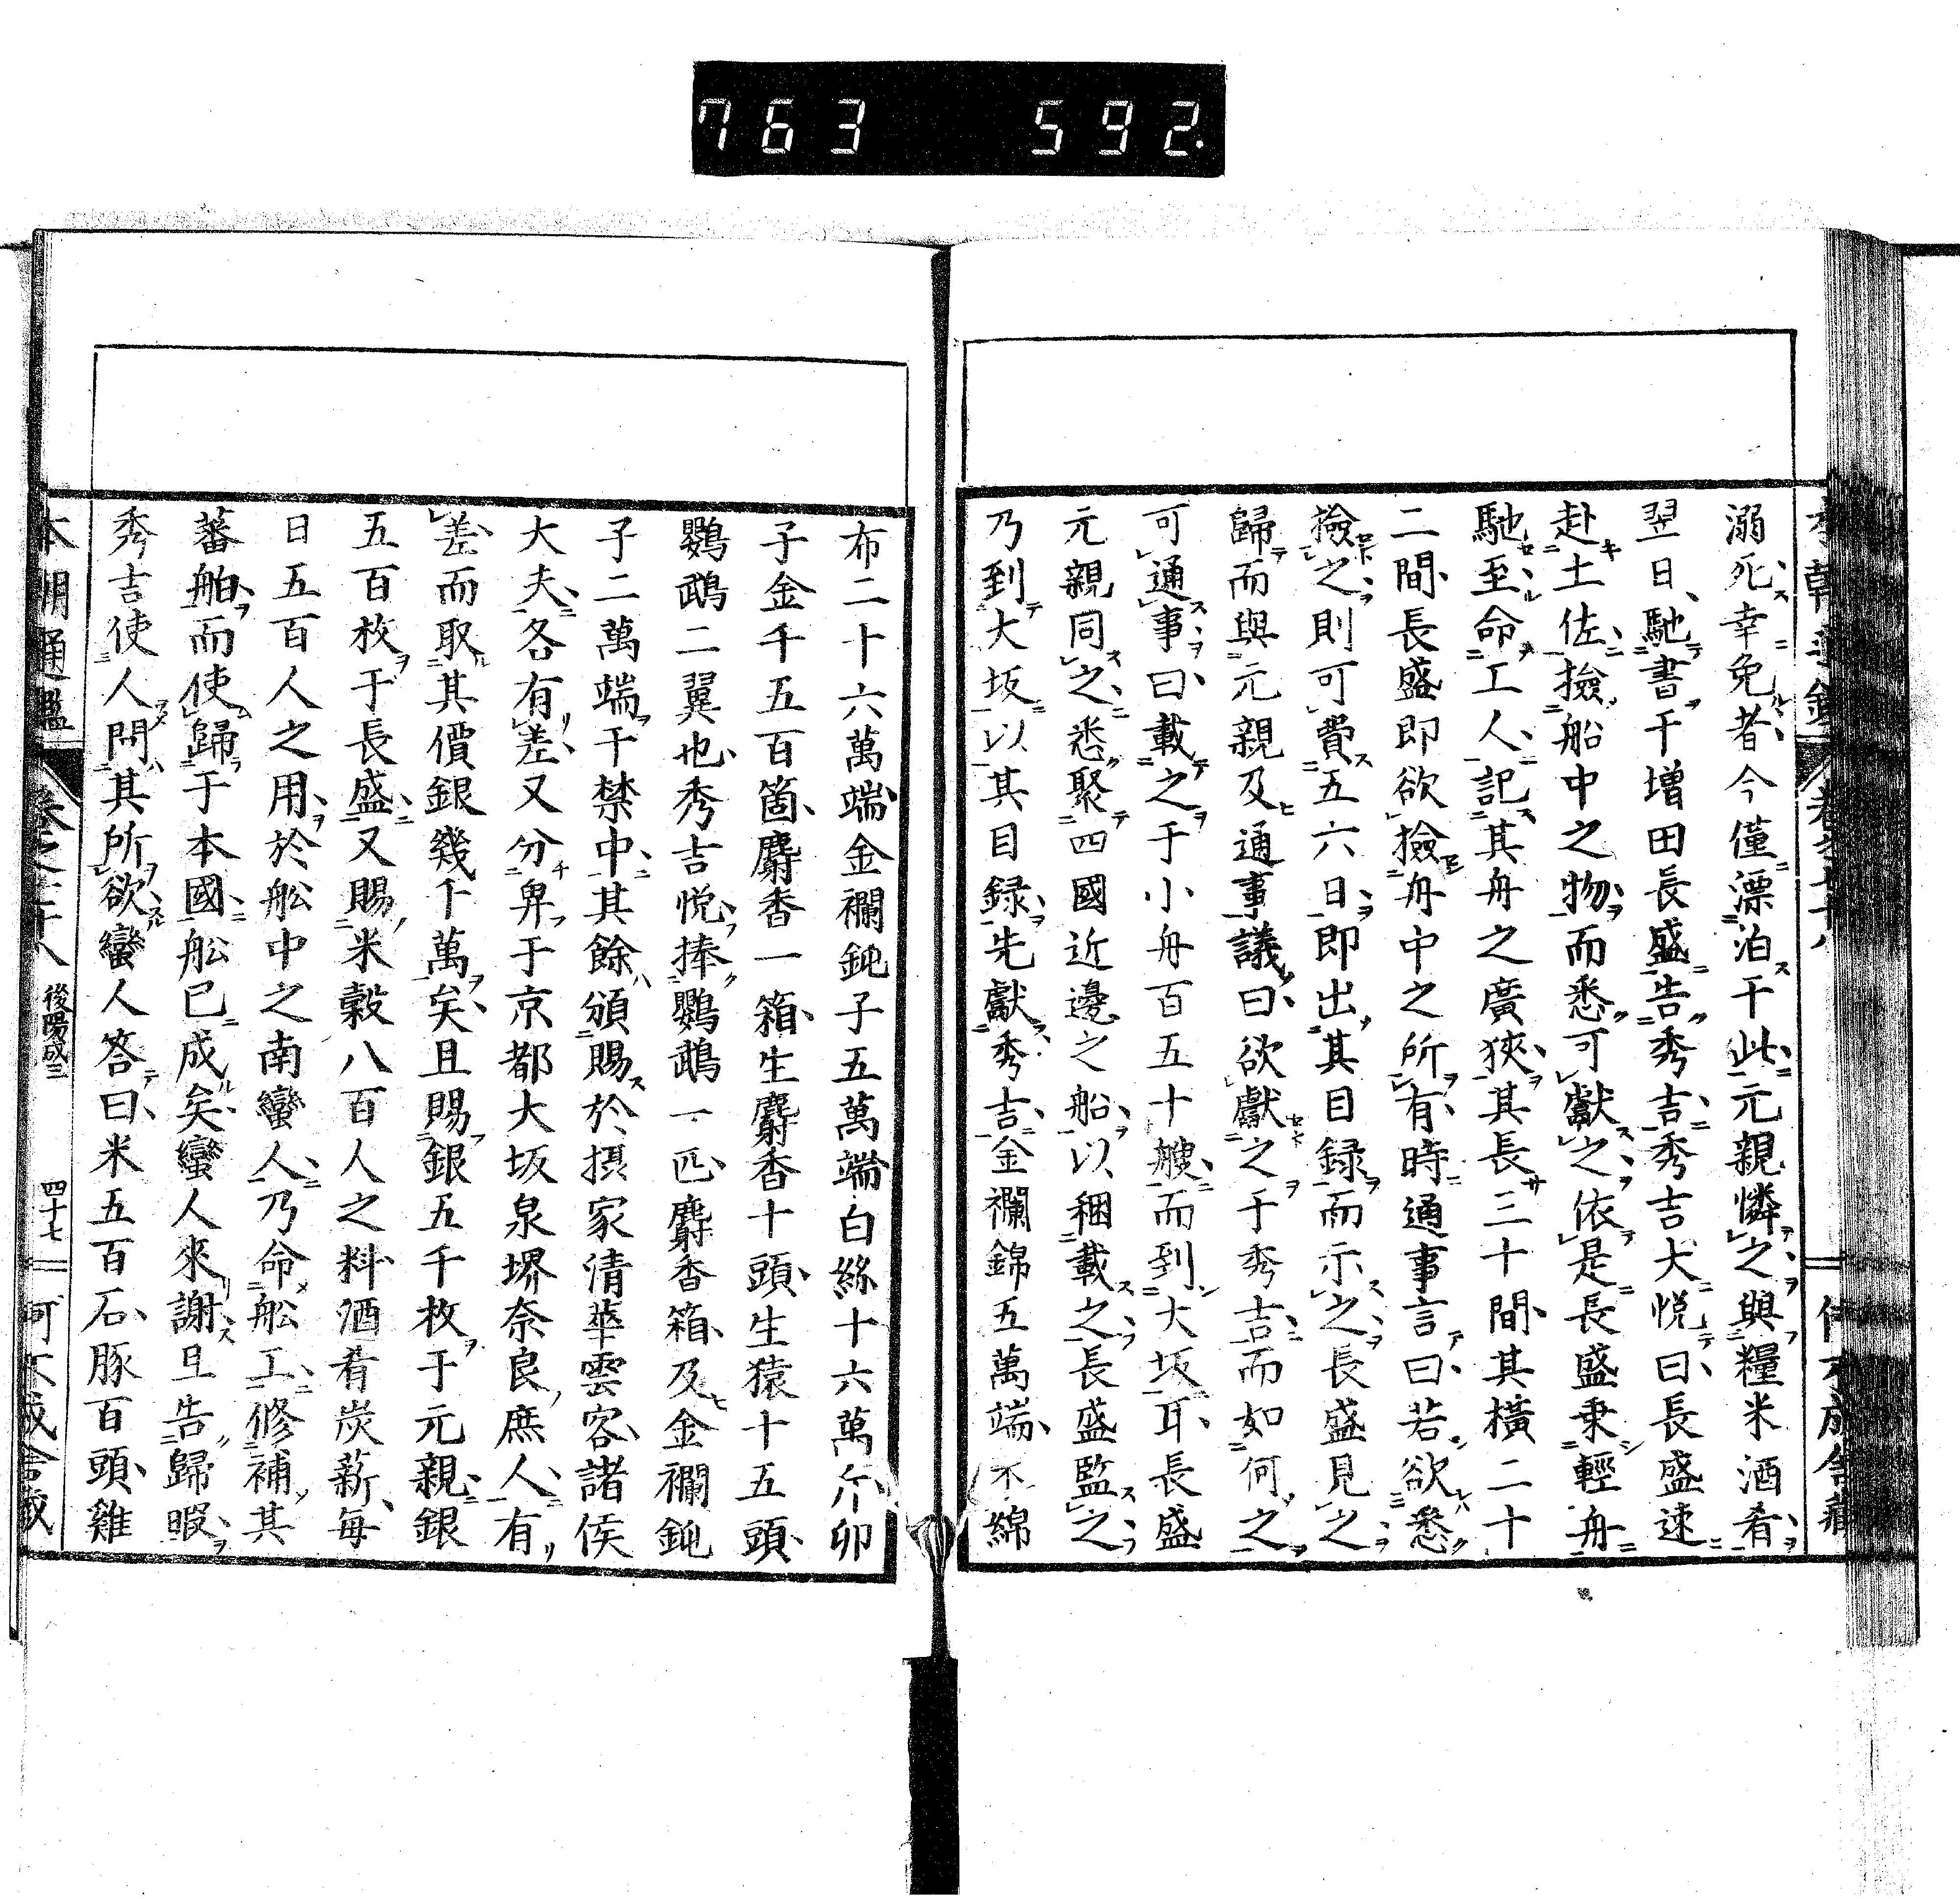 763 592.
溺死幸免者今僅漂泊于此元親憐之與糧米酒肴
翌日馳書于增田長盛告秀吉秀吉大悦曰長盛速
赴土佐撿船中之物而悉可獻之依是長盛乗輕舟
馳至命工人記其舟之廣狹其長三十間其橫二十
二間長盛即欲撿舟中之所有時通事言曰若欲悉
撿之則可費五六日即出其目録而示之長盛見之
歸而與元親及通事議曰欲獻之于秀吉而如何之
可通事曰載之于小舟百五十艘而到大坂耳長盛
元親同之悉聚四國近邊之船以稇載之長盛監之
乃到大坂以其目録先獻秀吉金襴錦五萬端不綿
布二十六萬端金襴鈍子五萬端白絲十六萬斤卯
子金千五百箇麝香一箱生麝香十頭生猿十五頭
鸚鵡二翼也秀吉悦捧鸚鵡一匹麝香箱及金襴鈍
子二萬端于禁中其餘頒賜於摂家清華雲客諸侯
大夫各有差又分畀于京都大坂泉堺奈良庶人有
差而取其價銀幾千萬矣且賜銀五千枚于元親銀
五百枚于長盛又賜米穀八百人之料酒肴炭薪每
日五百人之用於舩中之南蠻人乃命舩工修補其
蕃舶而使歸于本國舩已成矣蠻人來謝且告歸暇
秀吉使人問其所欲蠻人答曰米五百石豚百頭雞
本朝通鑑 卷之七十八 後陽成三 四十七